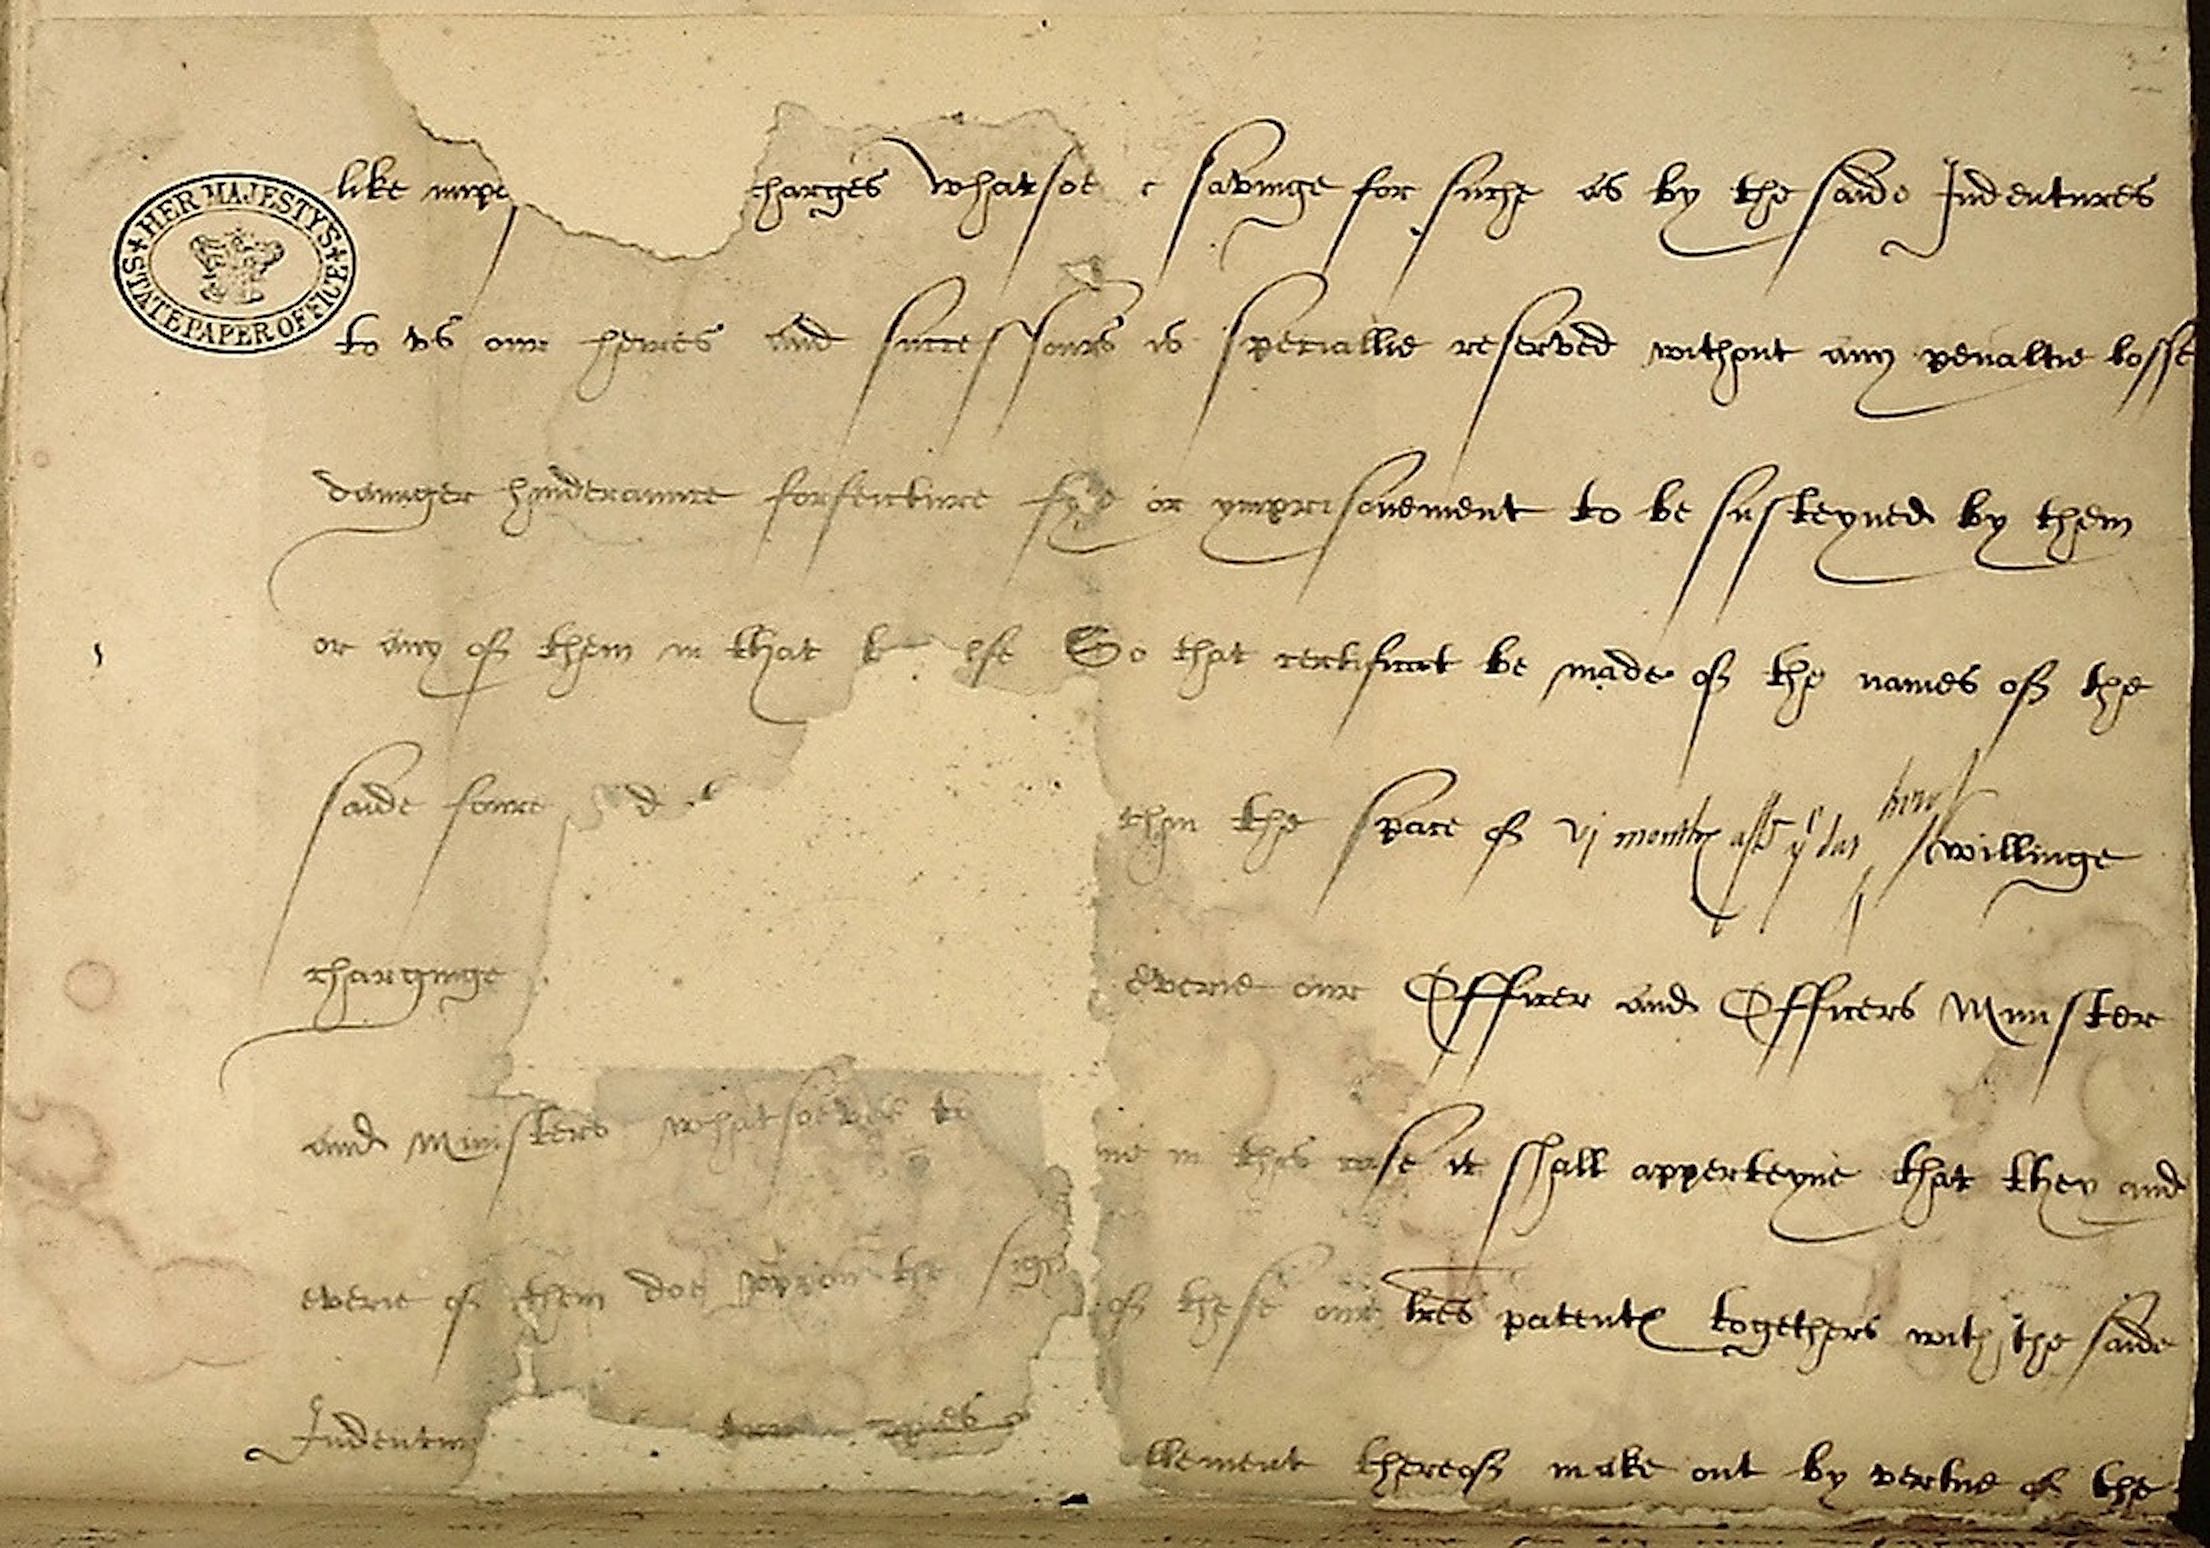 HER MAJESTYS STATE PAPER OFFICE
like charges whatsoe savinge for suche as by the saide Indentures
to us our heires and successours is speciallie reserved without any penaltie losse
daunger hinderaunce forfeicture fyne or ymprisonement to be susteyned by them
or any of them in that So that certificat be made of the names of the
saide foure thin the space of vj monthes aft yͤ dat herof willinge
charginge everie our Officer and Officers Minister
and Ministers whatsoever to in this case it shall apperteyne that they and
everie of them doe vppon the sight of these our lres patentes togethers with the saide
Indentur llement thereof make out by vertue of the